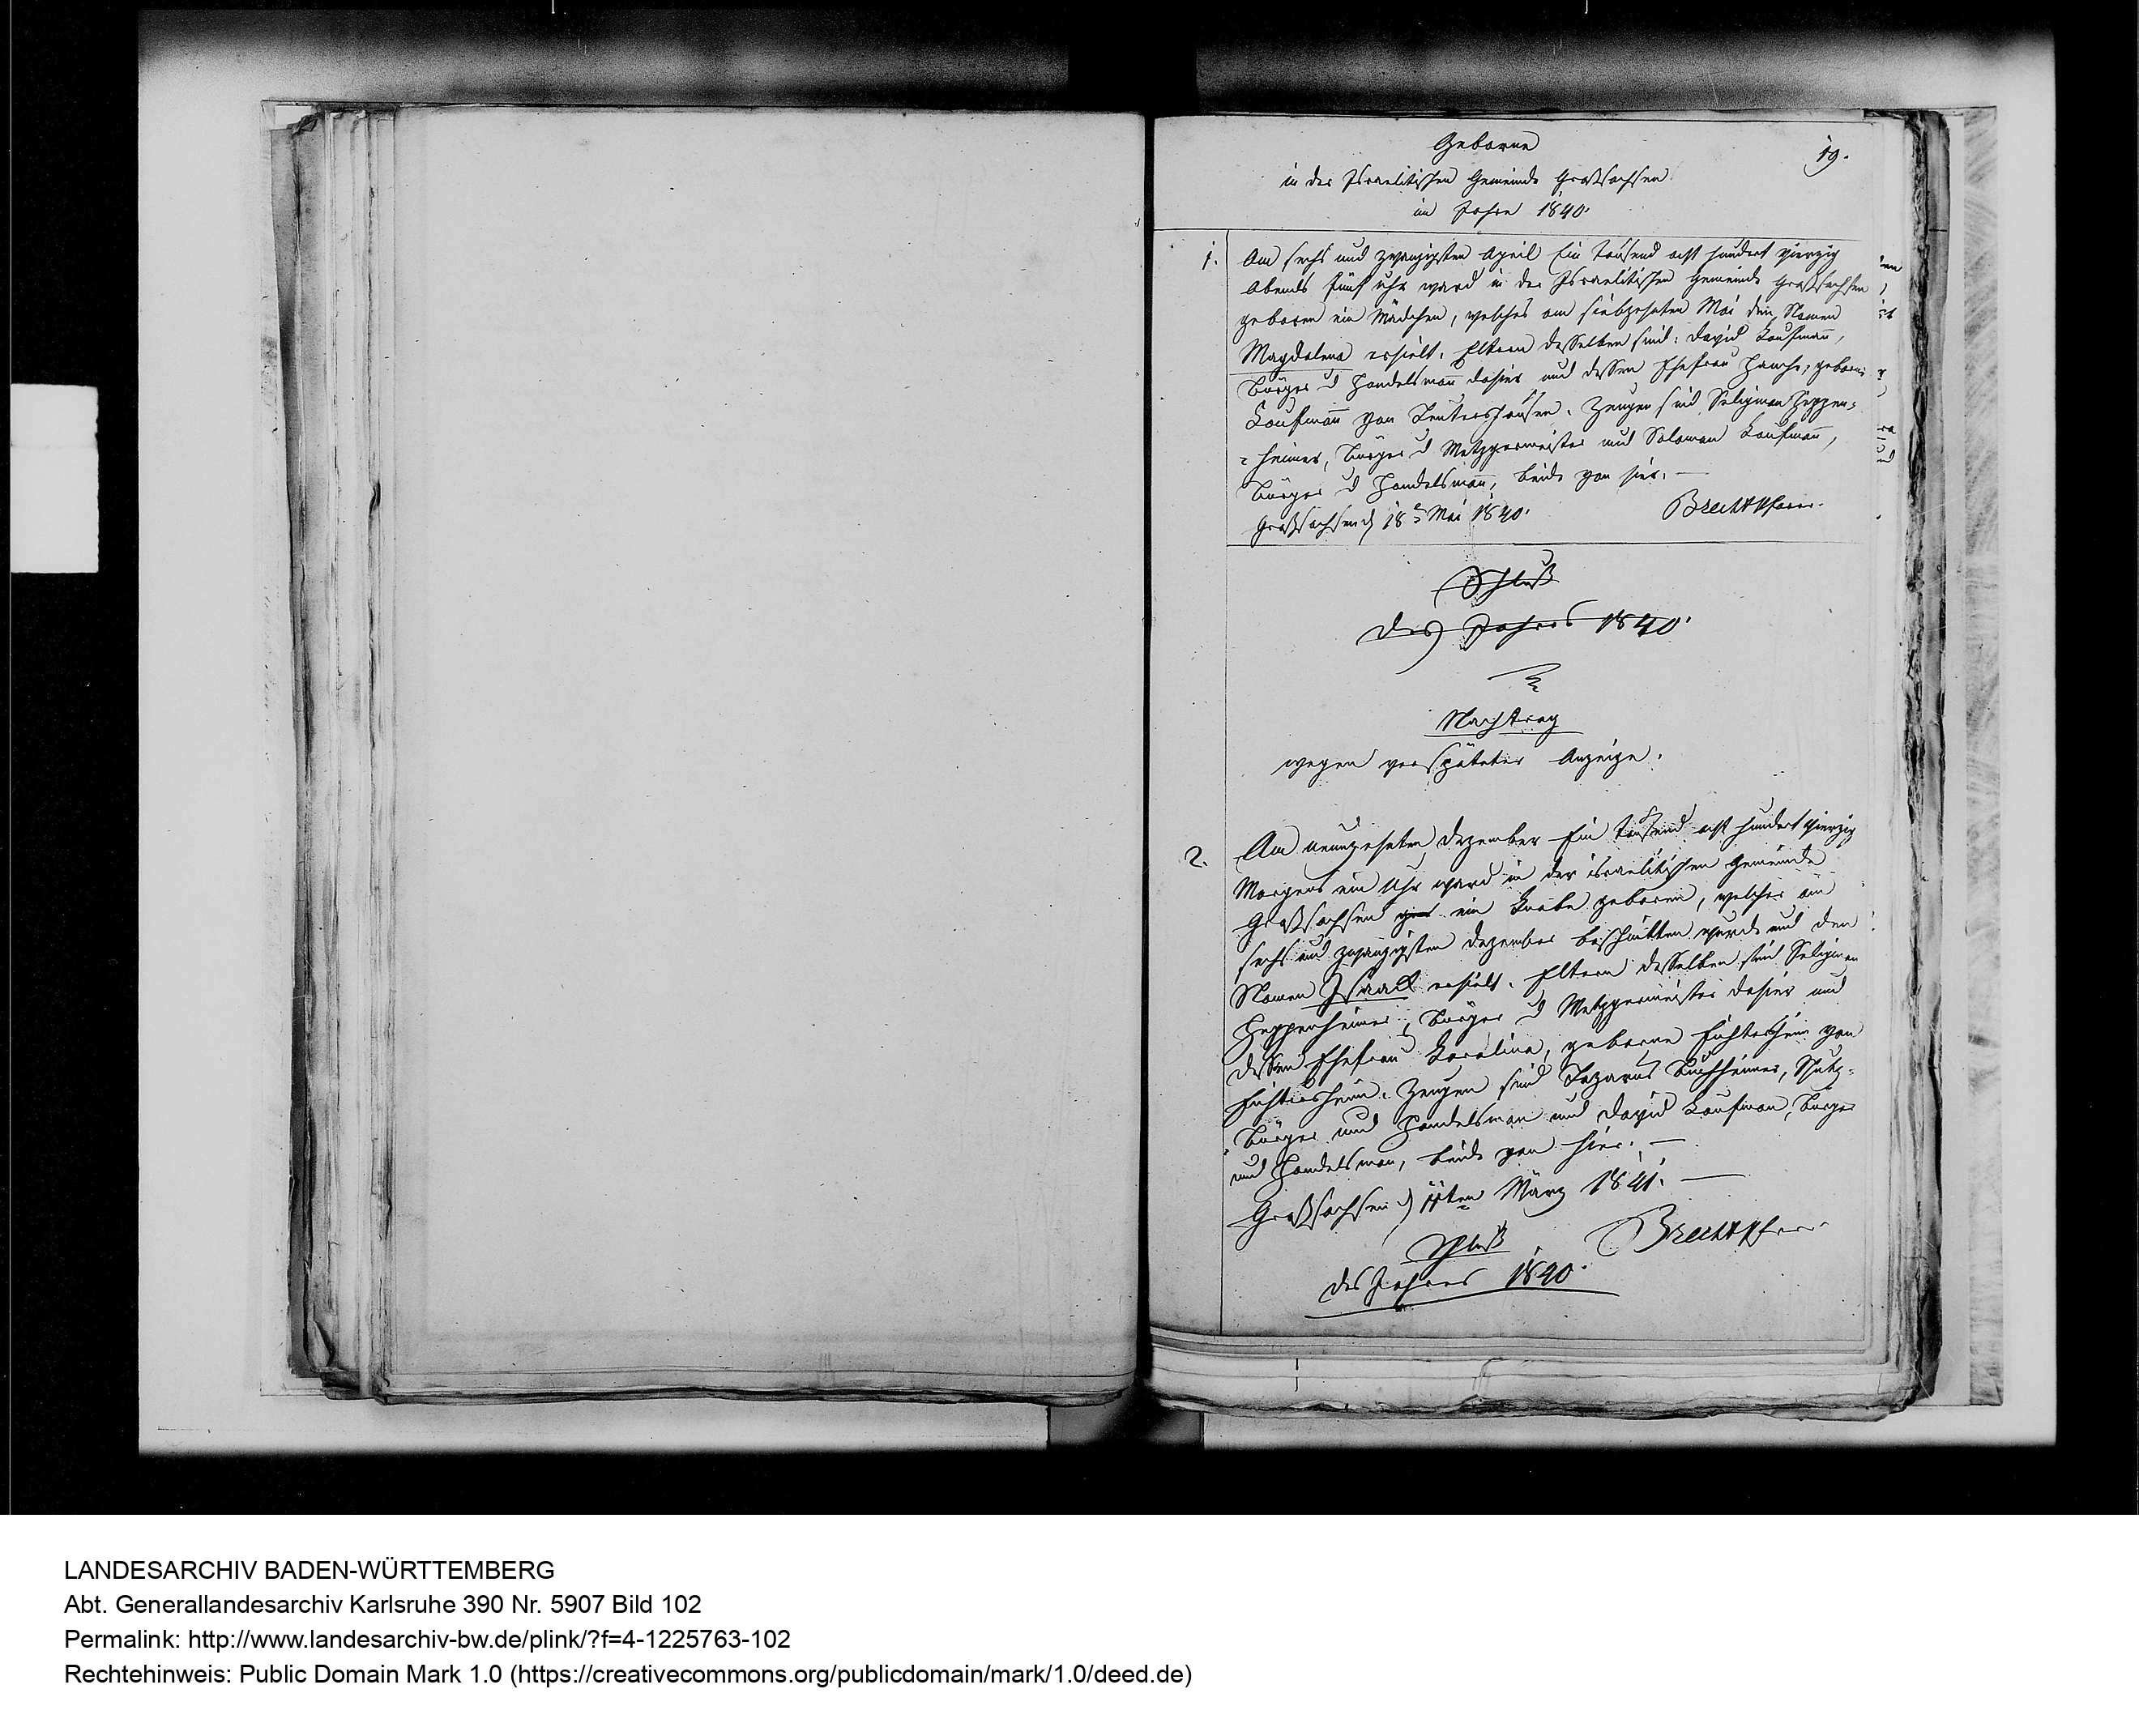 Geborne
19.
in der Israelitischen Gemeinde Großsachsen
im Jahre 1840.
1. Am sechs und zwanzigsten April Ein tausend acht hundert vierzig
Abends fünf Uhr ward in der Israelitischen Gemeinde Großsachsen
geboren ein Mädchen, welches am siebzehnten Mai den Namen
Magdalena erhielt. Eltern desselben sind: David Kaufmann,
Bürger u Handelsmann dahier und dessen Ehefrau geborne
Kaufmann von Leutershausen. Zeugen sind Seligman Heppen-
heimer, Bürger u Metzgermeister und Salomon Kaufmann,
Bürger u Handelsmann, beide von hier. —
Großsachsen d 18t Mai 1840. Brecht Pfarr.
Schluß
des Jahres 1840.
Nachtrag
wegen verspäteter Anzeige.
2. Am neunzehnten Dezember Ein tausend acht hundert vierzig
Morgens ein Uhr ward in der israelitischen Gemeinde
Großsachsen ein Knabe geboren, welcher am
sechs und zwanzigsten Dezember beschnitten wurde und den
Namen Israel erhielt. Eltern desselben sind Seligman
Heppenheimer, Bürger u Metzgermeister dahier und
dessen Ehefrau Karolina, geborne Eichtersheim von
Eichtersheim. Zeugen sind Lazarus Buchheimer, Schutz-
Bürger und Handelsman und David Kaufman, Bürger
und Handelsman, beide von hier. —
Großsachsen d 11ten März 1841. —
Schluß Brecht Pfarr.
des Jahres 1840.
LANDESARCHIV BADEN-WÜRTTEMBERG
Abt. Generallandesarchiv Karlsruhe 390 Nr. 5907 Bild 102
Permalink: http://www.landesarchiv-bw.de/plink/?f=4-1225763-102
Rechtehinweis: Public Domain Mark 1.0 (https://creativecommons.org/publicdomain/mark/1.0/deed.de)